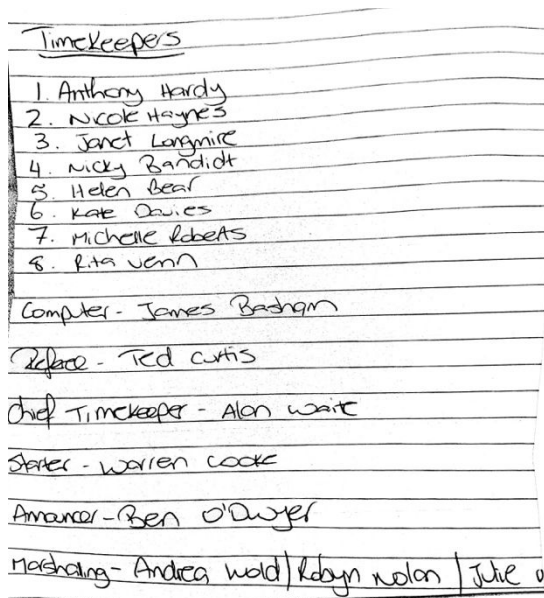 Timekeepers
1. Anthony Hardy
2. Nicole Haynes
3. Janet Longmire
4. Nicky Bandidt
5. Helen Bear
6. Kate Davies
7. Michelle Roberts
8. Rita Venn
Computer - James Basham
- Ted Curtis
Chief Timekeeper - Alan Waite
Starter - Warren Cooke
- Ben O'Dwyer
Marshaling - Andrea Wold | Robyn Nolan | Julie